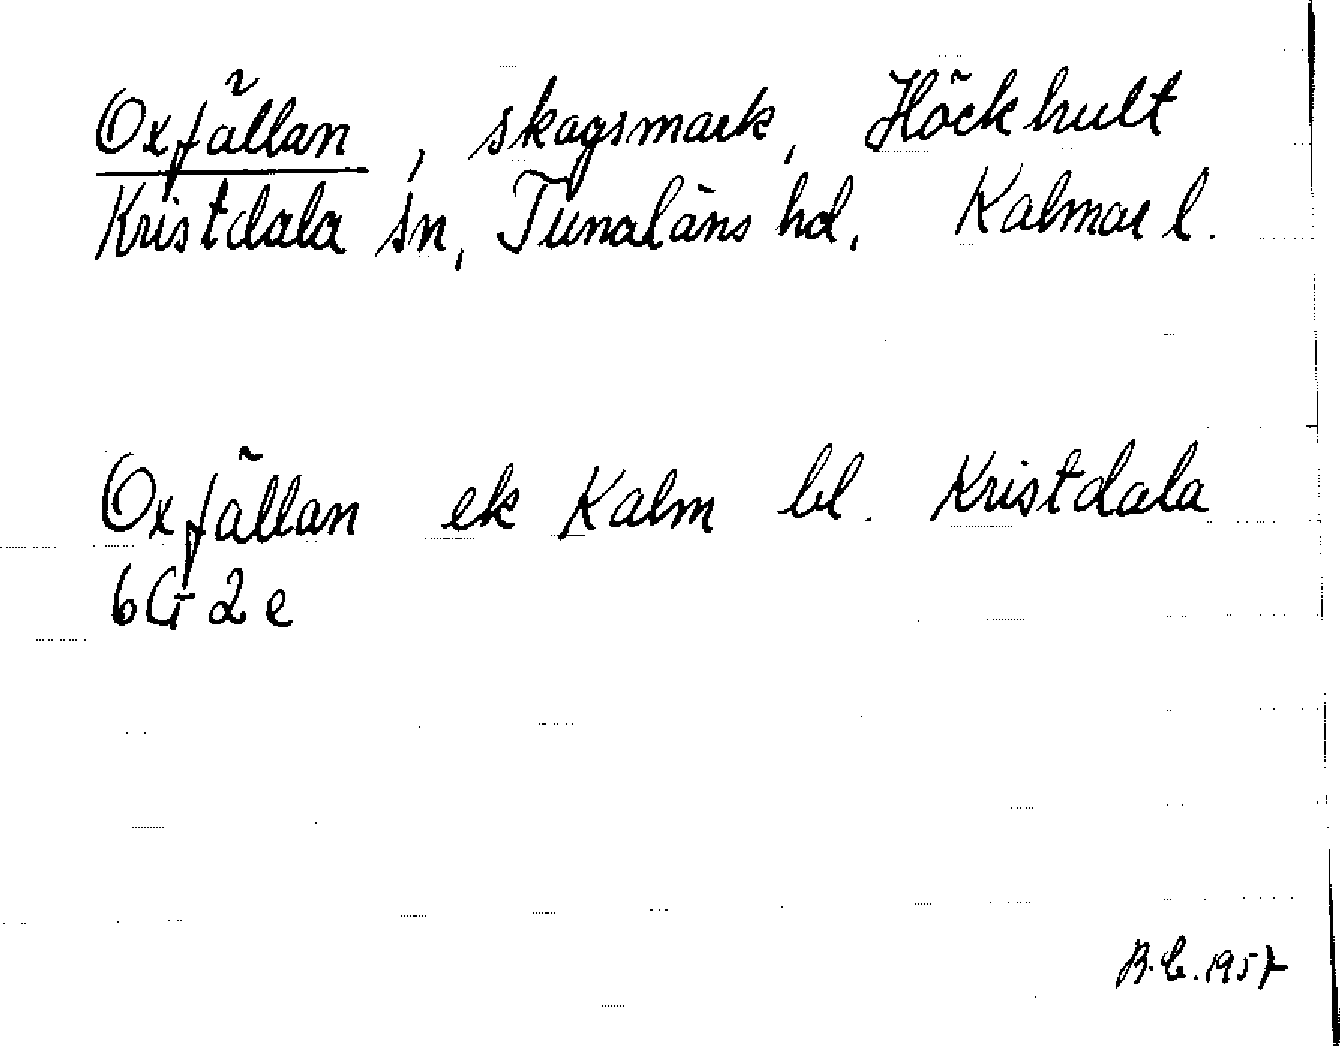 Oxfällan, skogsmark, Höckhult
Kristdala sn, Tunaläns hd, Kalmar l.
Oxfällan ek Kalm bl. Kristdala
6G 2e
1957